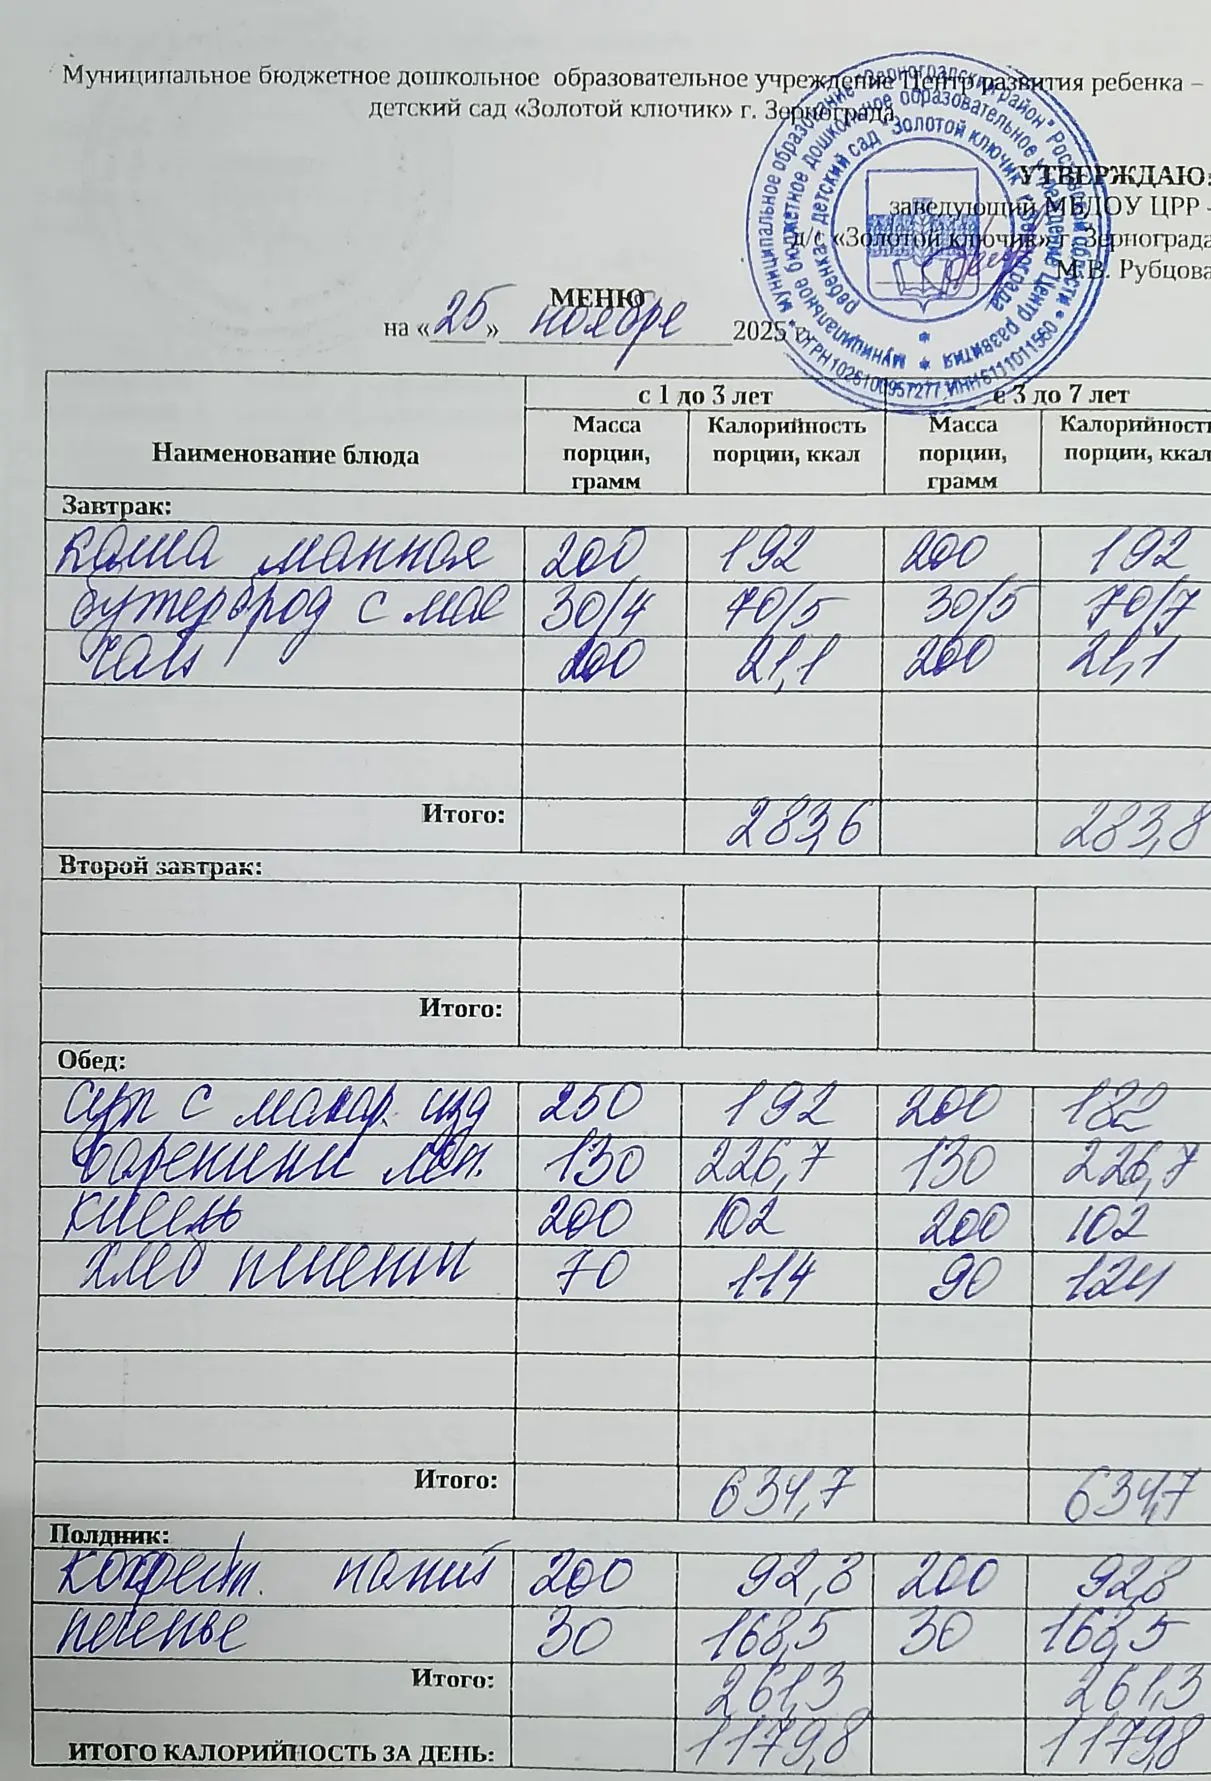 Муниципальное бюджетное дошкольное образовательное учреждение Центр развития ребенка –
детский сад «Золотой ключик» г. Зернограда
УТВЕРЖДАЮ:
заведующий МБДОУ ЦРР -
д/с «Золотой ключик» г. Зернограда
М.В. Рубцова
МЕНЮ
на «25» ноября 2025 г
с 1 до 3 лет с 3 до 7 лет
Наименование блюда Масса порции, грамм Калорийность порции, ккал Масса порции, грамм Калорийность порции, ккал
Завтрак:
каша манная 200 192 200 192
бутерброд с мас 30/4 70/5 30/5 70/7
чай 200 21,1 200 21,1
Итого: 283,6 283,8
Второй завтрак:
Итого:
Обед:
суп с макар. изд 250 192 200 182
вареники лен. 130 226,7 130 226,7
кисель 200 102 200 102
хлеб пшенич 70 114 90 124
Итого: 634,7 634,7
Полдник:
кофейн. напит 200 92,8 200 92,8
печенье 30 168,5 30 168,5
Итого: 261,3 261,3
ИТОГО КАЛОРИЙНОСТЬ ЗА ДЕНЬ: 1179,8 1179,8
муниципальное образование "Зерноградский район" Ростовской области * ОГРН 1026100957277, ИНН 6111011560
муниципальное бюджетное дошкольное образовательное учреждение Центр развития
ребенка - детский сад "Золотой ключик" г. Зернограда